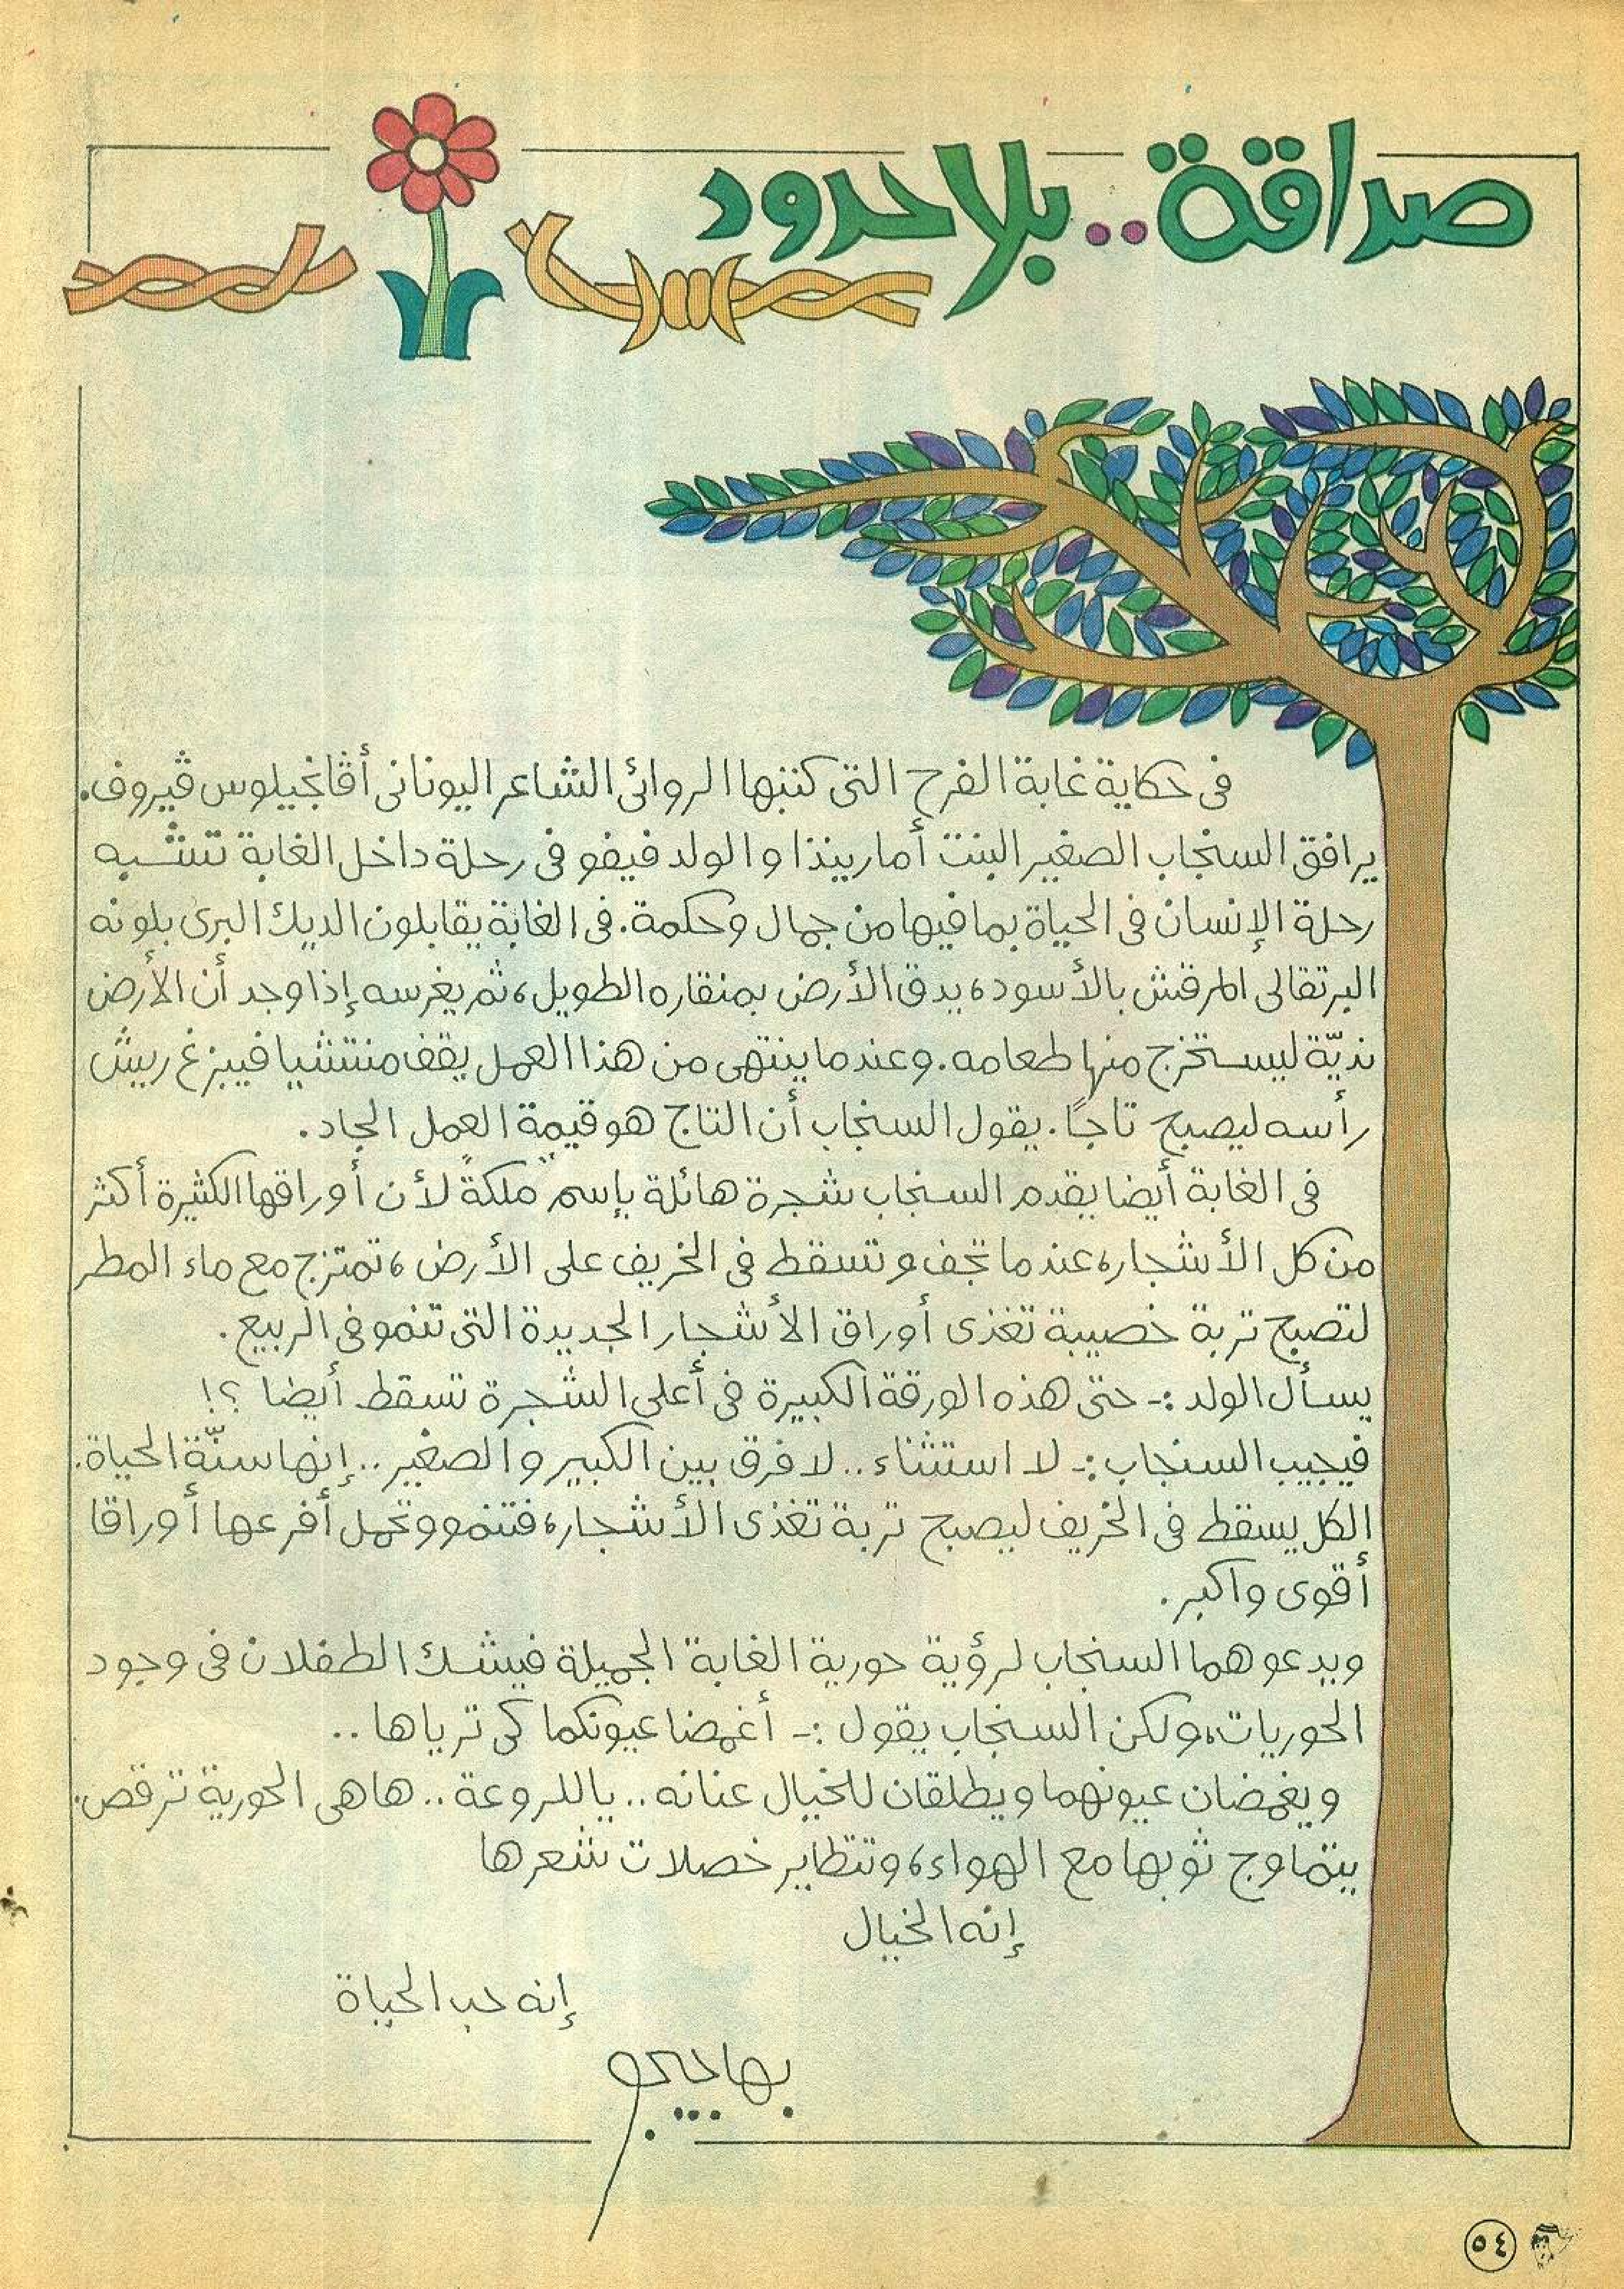 صداقة.. بلا حدود
فى حكاية غابة الفرح التى كتبها الروائى الشاعر اليونانى أڤانجيلوس ڤيروف.
يرافق السنجاب الصغير البنت أماريندا والولد فيفو فى رحلة داخل الغابة تشبه
رحلة الإنسان فى الحياة بما فيها من جمال وحكمة. فى الغابة يقابلون الديك البرى بلونه
البرتقالى المرقش بالأسود، يدق الأرض بمنقاره الطويل، ثم يغرسه إذا وجد أن الأرض
نديّة ليستخرج منها طعامه. وعندما ينتهى من هذا العمل يقف منتشيا فيبزغ ريش
رأسه ليصبح تاجًا. يقول السنجاب أن التاج هو قيمة العمل الجاد.
فى الغابة أيضا يقدم السنجاب شجرة هائلة بإسم "ملكة" لأن أوراقها الكثيرة أكثر
من كل الأشجار، عندما تجف وتسقط فى الخريف على الأرض، تمتزج مع ماء المطر
لتصبح تربة خصيبة تغذى أوراق الأشجار الجديدة التى تنمو فى الربيع.
يسأل الولد :- حتى هذه الورقة الكبيرة فى أعلى الشجرة تسقط أيضا ؟!
فيجيب السنجاب :- لا استثناء.. لا فرق بين الكبير والصغير.. إنها سنّة الحياة.
الكل يسقط فى الخريف ليصبح تربة تغذى الأشجار، فتنمو وتحمل أفرعها أوراقا
أقوى واكبر.
ويدعوهما السنجاب لرؤية حورية الغابة الجميلة فيشك الطفلان فى وجود
الحوريات، ولكن السنجاب يقول :- أغمضا عيونكما كى ترياها..
ويغمضان عيونهما ويطلقان للخيال عنانه.. ياللروعة.. هاهى الحورية ترقص.
يتماوج ثوبها مع الهواء، وتتطاير خصلات شعرها
إنه الخيال
إنه حب الحياة
بهاجيجو
٥٤